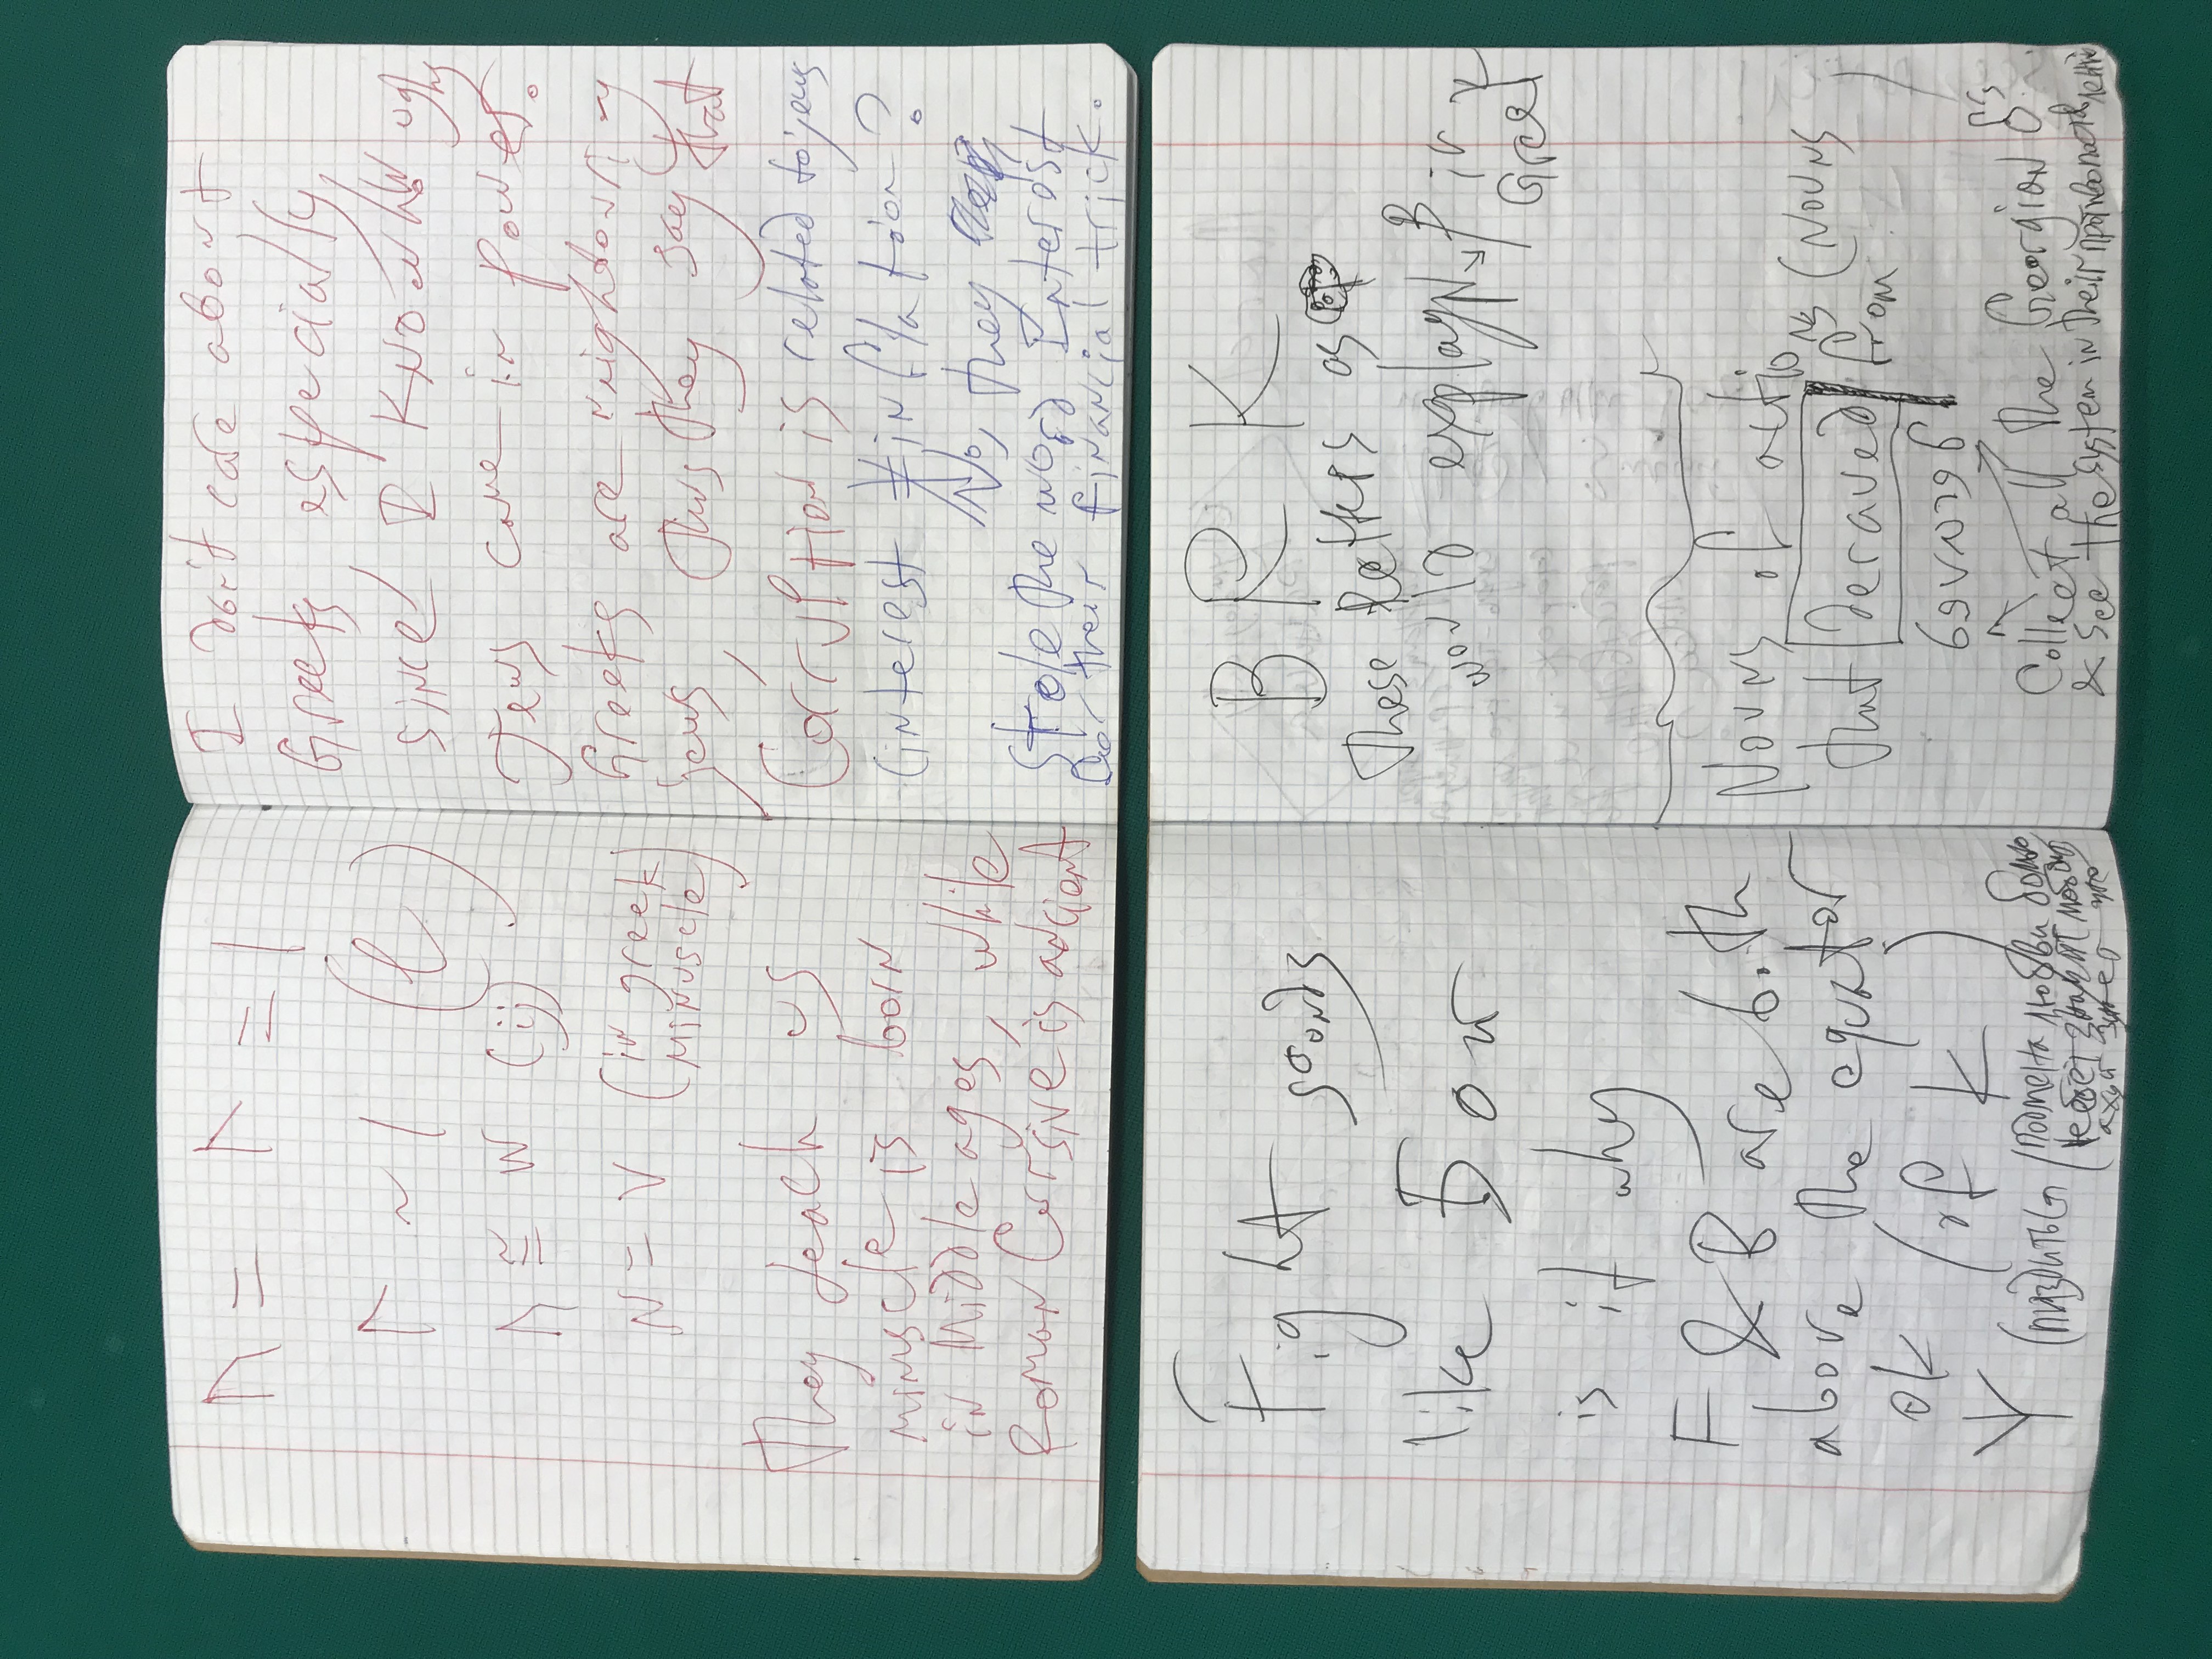 Λ = Γ = l
Γ ~ l (l)
Λ ≅ W (ij)
N = V (in greek
minuscle)
They teach us
minuscle is born
in Middle ages, while
Roman Cursive is ancient
I don't care about
Greeks especially,
since I know how ugly
Jews came in power.
Greeks are neighbouring
jews, thus they say that
Corruption is related to jews
(interest ≠ inflation?
No, they
stole the word Interest
for their financial trick.
Fight sounds
like Бои
is it why
F & B are both
above the equator
ok (of K)
Ψ (пиздиться / подмена любви болью
тебя значит любит
уже
B R K
These letters as
would explain β in
Greek
Nouns of actions (nouns
that deraved from
Collect all the Georgian δ's
& see the system in their противопоставлении